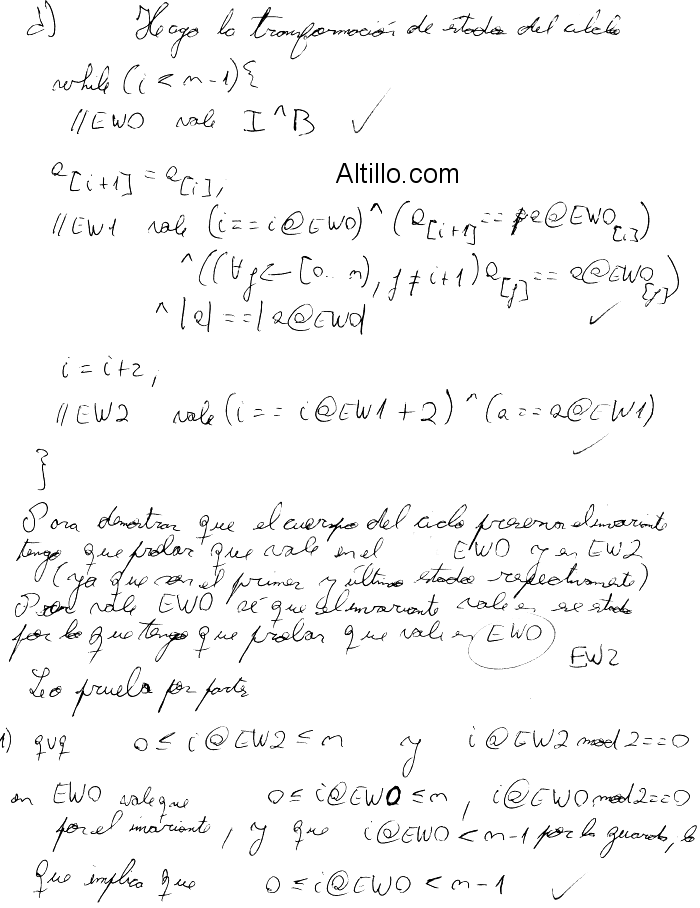 d) Hago la transformación de estados del ciclo
while (i < n-1) {
// EW0 vale I ^ B ✓
a[i+1] = a[i];
Altillo.com
// EW1 vale (i == i@EW0) ^ (a[i+1] == a@EW0[i])
^ ((∀j ← [0..n), j ≠ i+1) a[j] == a@EW0[j])
^ |a| == |a@EW0| ✓
i = i+2;
// EW2 vale (i == i@EW1 + 2) ^ (a == a@EW1) ✓
}
Para demostrar que el cuerpo del ciclo preserva el invariante
tengo que probar que vale en el EW0 y en EW2
(ya que son el primer y último estado respectivamente)
vale EW0 sé que el invariante vale en ese estado
por lo que tengo que probar que vale en EW0
EW2
Lo pruebo por partes
1) qvq 0 ≤ i@EW2 ≤ n y i@EW2 mod 2 == 0
en EW0 vale que 0 ≤ i@EW0 ≤ n, i@EW0 mod 2 == 0
por el invariante, y que i@EW0 < n-1 por la guarda, lo
que implica que 0 ≤ i@EW0 < n-1 ✓